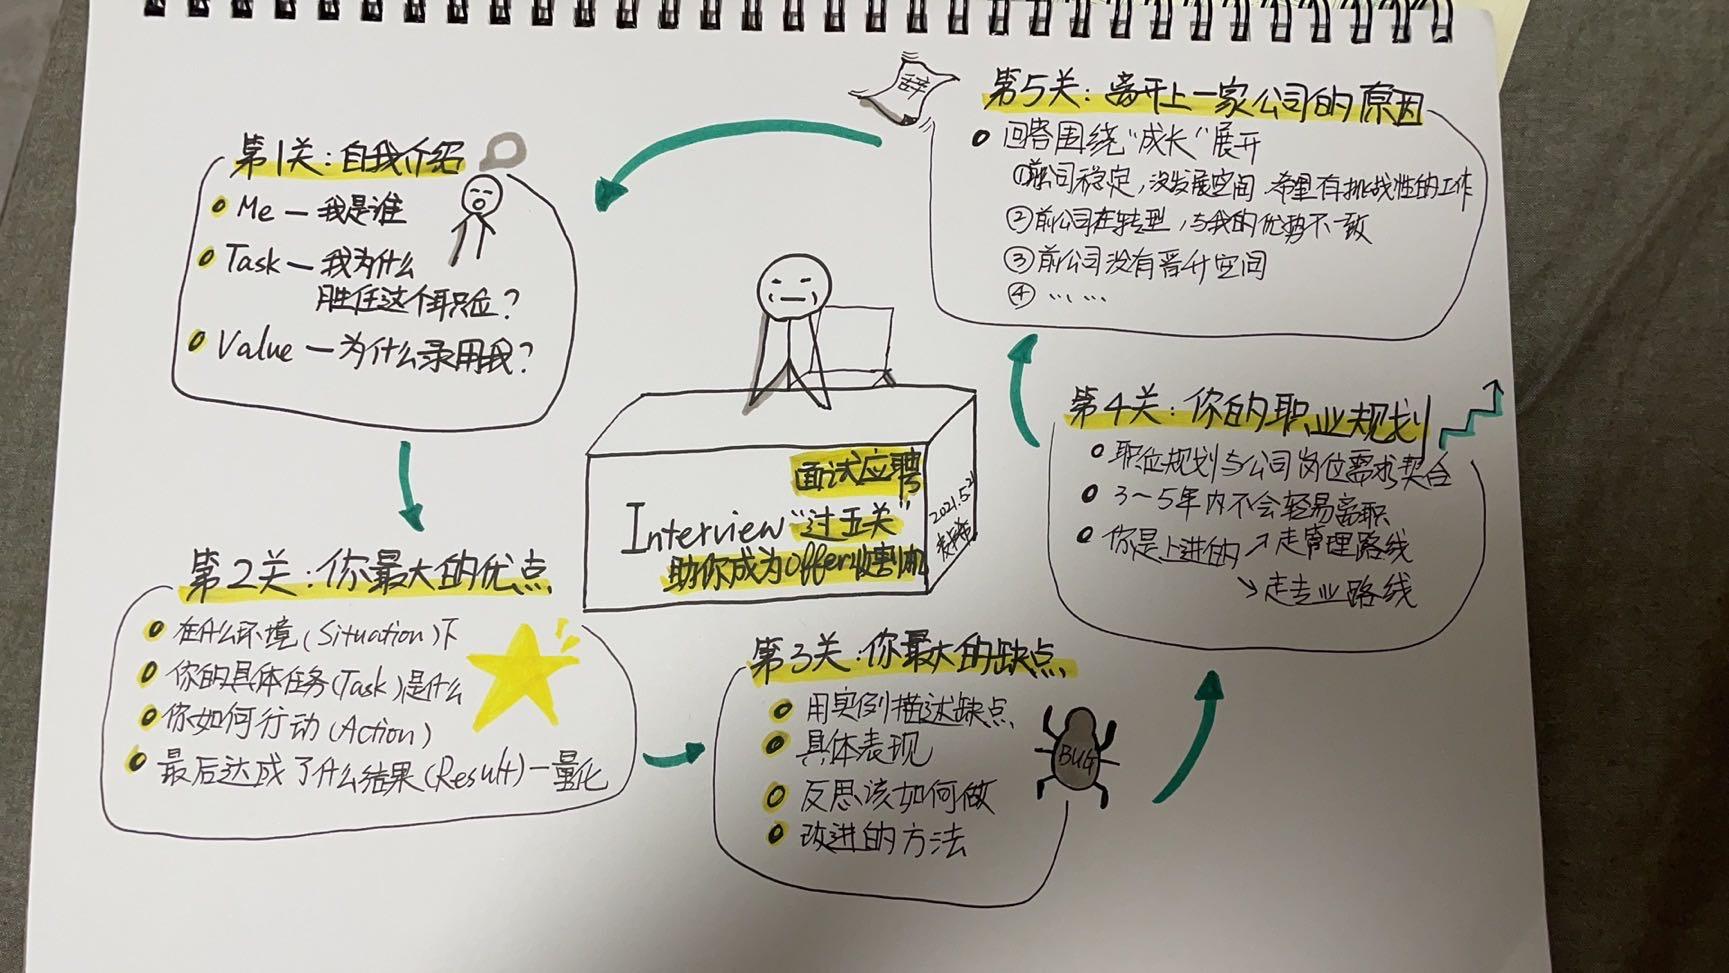 面试应聘
Interview "过五关"
助你成为offer收割机
2021.5.21
第1关：自我介绍
Me — 我是谁
Task — 我为什么
胜任这个职位？
Value — 为什么录用我？
第2关：你最大的优点
在什么环境(Situation)下
你的具体任务(Task)是什么
你如何行动(Action)
最后达成了什么结果(Result) — 量化
第3关：你最大的缺点
用实例描述缺点
具体表现
反思该如何做
改进的方法
BUG
第4关：你的职业规划
职位规划与公司岗位需求契合
3~5年内不会轻易离职
你是上进的↗走管理路线
↘走专业路线
辞
第5关：离开上一家公司的原因
回答围绕"成长"展开
①前公司稳定，没发展空间，希望有挑战性的工作
②前公司在转型，与我的优势不一致
③前公司没有晋升空间
④ … …